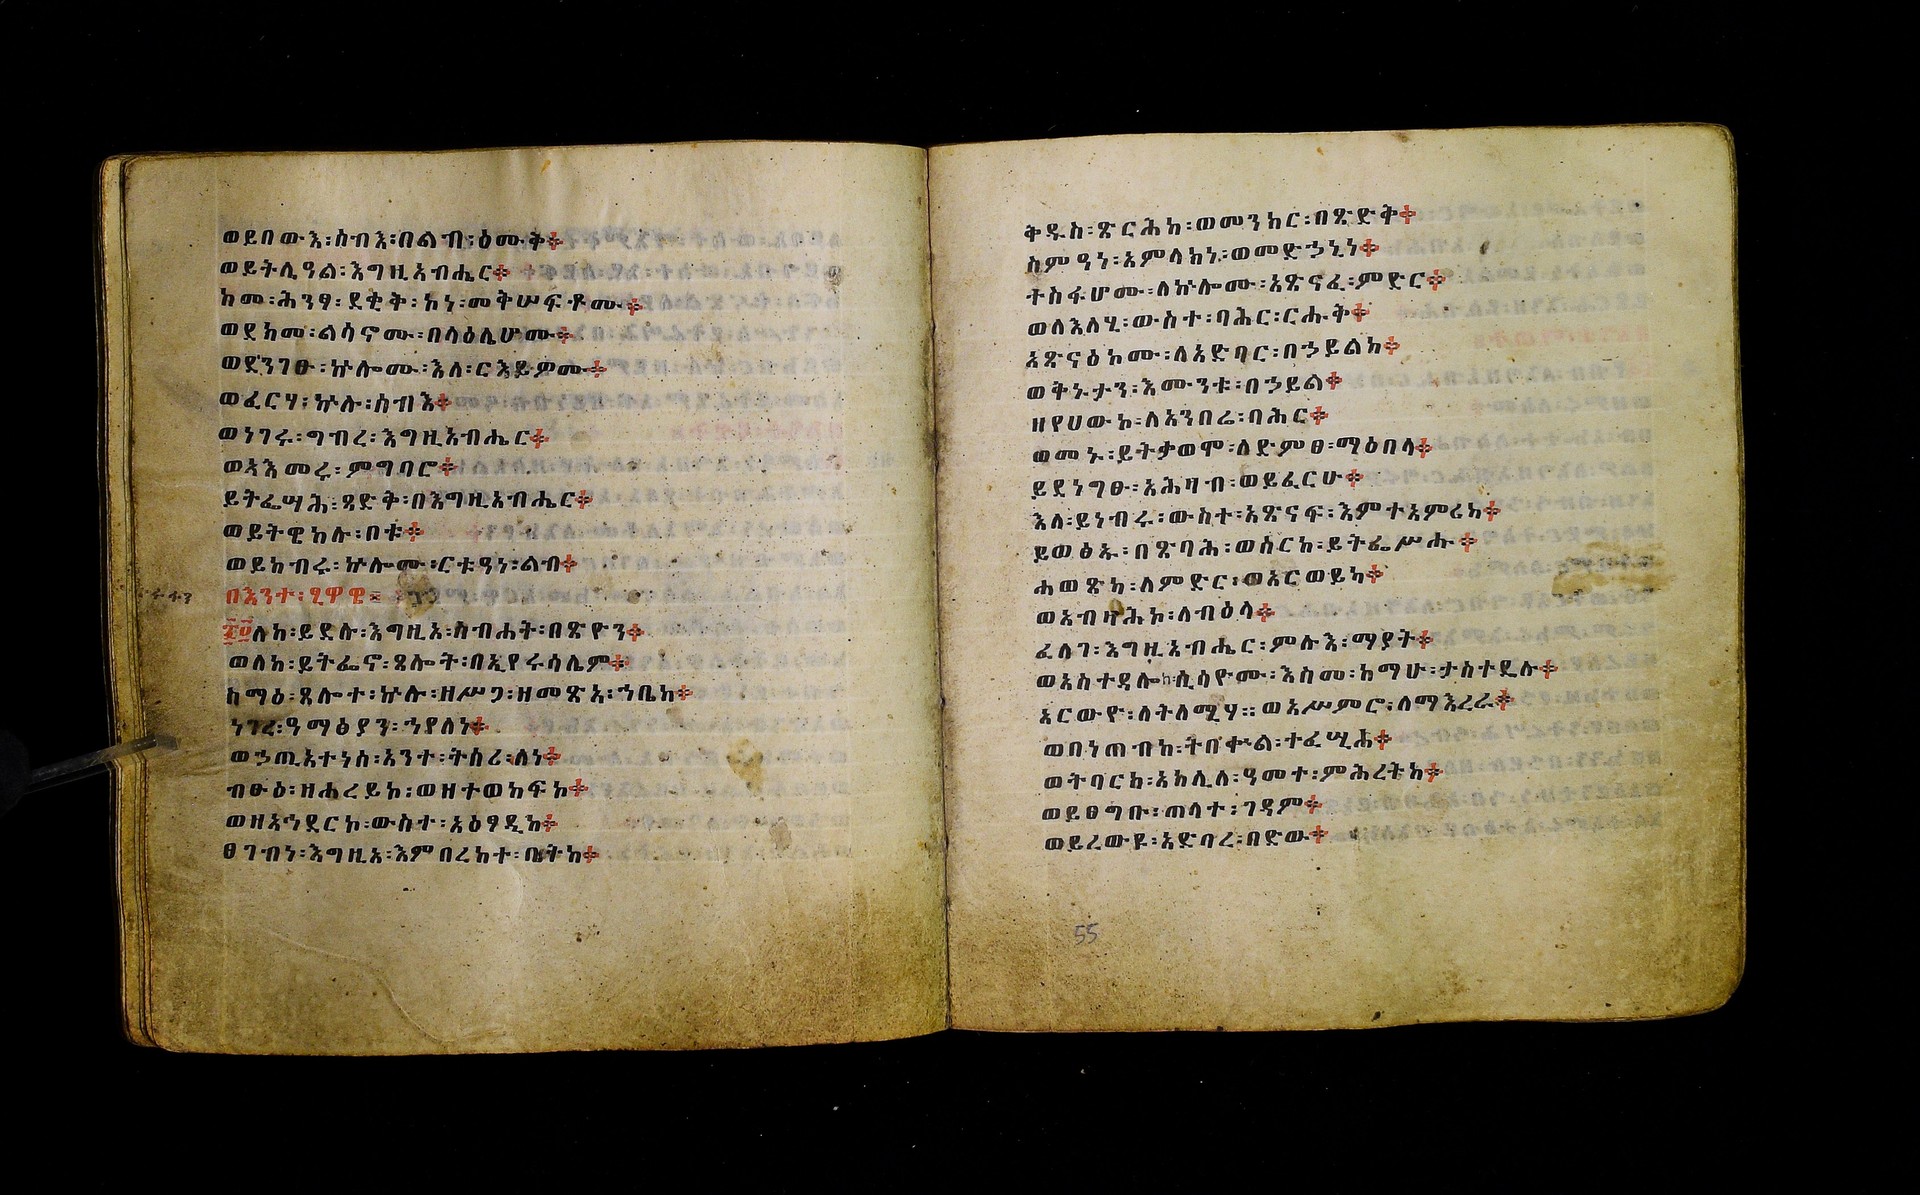 ወይበውእ፡ስብእ፡በልብ፡ዕሙቅ፨
ወይትሌዓል፡እግዚአብሔር፨
ከመ፡ሕንፃ፡ደቂቅ፡ኮነ፡መቅሠፍቶሙ፨
ወደክመ፡ልሳኖሙ፡በላዕሌሆሙ፨
ወደንገፁ፡ኵሎሙ፡እለ፡ርእይዎሙ፨
ወፈርሃ፡ኵሉ፡ስብእ፨
ወነገሩ፡ግብረ፡እግዚአብሔር፨
ወኣእመሩ፡ምግባሮ፨
ይትፌሣሕ፡ጻድቅ፡በእግዚአብሔር፨
ወይትዌከሉ፡በቱ፨
ወይከብሩ፡ኵሎሙ፡ርቱዓነ፡ልብ፨
በእንተ፡ፂዋዌ፡
፷፬ለከ፡ይደሉ፡እግዚአ፡ስብሐት፡በጽዮን፨
ወለከ፡ይትፌኖ፡ጸሎት፡በኢየሩሳሌም፨
ስማዕ፡ጸሎተ፡ኵሉ፡ዘሥጋ፡ዘመጽአ፡ኀቤከ፨
ነገረ፡ዓማፅያን፡ኀየለነ፨
ወኃጢአተነሰ፡አንተ፡ትሰሪ፡ለነ፨
ብፁዕ፡ዘሐረይከ፡ወዘተወከፍከ፨
ወዘአኅደርኮ፡ውስተ፡አዕፃዲከ፨
ፀገብነ፡እግዚአ፡እምበረከተ፡ቤትከ፨
ቅዱስ፡ጽርሕከ፡ወመንክር፡በጽድቅ፨
ስምዓነ፡አምላክነ፡ወመድኃኒነ፨
ተስፋሆሙ፡ለኵሎሙ፡አጽናፈ፡ምድር፨
ወለእለሂ፡ውስተ፡ባሕር፡ርሑቅ፨
አጽናዕከሙ፡ለአድባር፡በኃይልከ፨
ወቅኑታን፡እሙንቱ፡በኃይል፨
ዘየሀውኮ፡ለአንበሬ፡ባሕር፨
ወመኑ፡ይትቃወሞ፡ለድምፀ፡ማዕበላ፨
ይደነግፁ፡አሕዛብ፡ወይፈርሁ፨
እለ፡ይነብሩ፡ውስተ፡አጽናፍ፡እምተአምሪከ፨
ይወፅኡ፡በጽባሕ፡ወሰርከ፡ይትፌሥሑ፨
ሐወጽካ፡ለምድር፡ወአርወይካ፨
ወአብዛሕኮ፡ለብዕላ፨
ፈለገ፡እግዚአብሔር፡ምሉእ፡ማያት፨
ወአስተዳሎከ፡ሲሳዮሙ፡እስመ፡ከማሁ፡ታስተዴሉ፨
አርውዮ፡ለትለሚሃ፡፡ወአሥምሮ፡ለማእረራ፨
ወበነጠብከ፡ትበቍል፡ተፈሢሓ፨
ወትባርክ፡አክሊለ፡ዓመተ፡ምሕረትከ፨
ወይፀግቡ፡ጠላተ፡ገዳም፨
ወይረውዩ፡አድባረ፡በድው፨
55